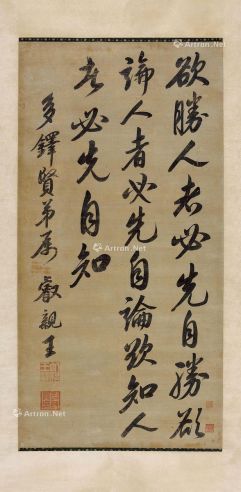 欲勝人者必先自勝欲
論人者必先自論欲知人
者必先自知
多鐸賢弟屬 叡親王
Artron.Net